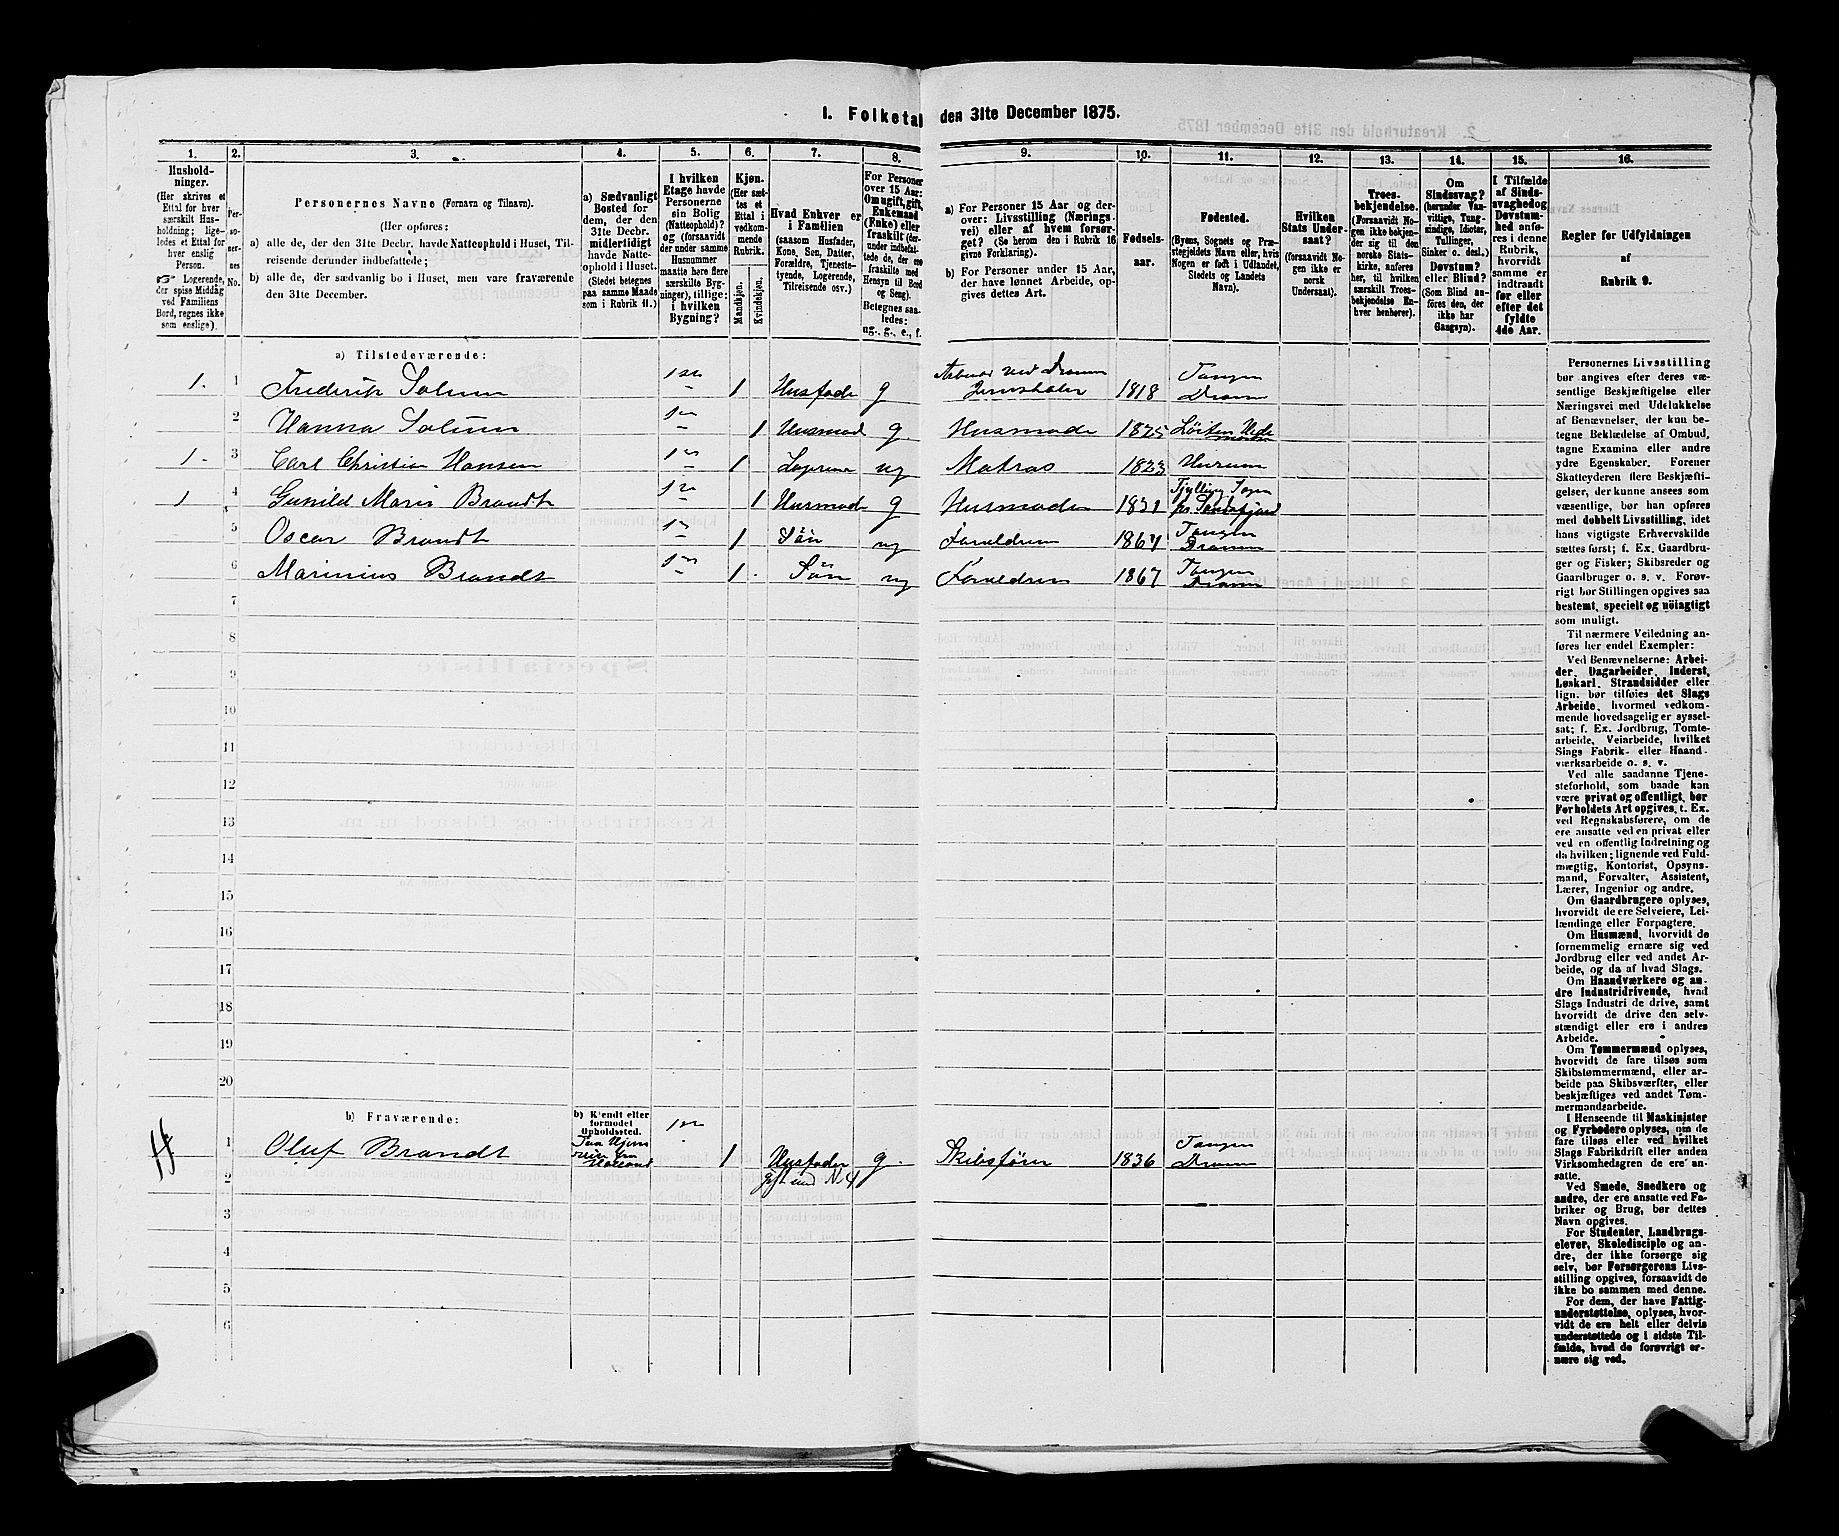 I. Folketal den 31te December 1875.
1. 2. 3. 4. 5. 6. 7. 8. 9. 10. 11. 12. 13. 14. 15. 16.
Hushold-
ninger.
(Her skrives et
Ettal for hver
særskilt Hus-
holdning; lige-
ledes et Ettal for
hver enslig
Person.
Logerende,
der spise Middag
ved Familiens
Bord, regnes ikke
som enslige).
Per-
so-
ner-
nes
No.
Personernes Navne (Fornavn og Tilnavn).
(Her opføres:
a) alle de, der den 31te Decbr. havde Natteophold i Huset, Til-
reisende derunder indbefattede;
b) alle de, der sædvanlig bo i Huset, men vare fraværende
den 31te December.
a) Sædvanligt
Bosted for
dem, der den
31te Decbr.
midlertidigt
havde Natte-
ophold i Huset.
(Stedet betegnes
paa samme Maade
som i Rubrik 11.)
I hvilken
Etage havde
Personerne
sin Bolig
(Natteophold)?
og (forsaavidt
der under samme
Husnummer
maatte høre flere
særskilte Byg-
ninger), tillige:
i hvilken
Bygning?
Kjøn.
(Her sæt-
tes et
Ettal i
vedkom-
mende
Rubrik.
Mandkjøn.
Kvindekjøn.
Hvad Enhver er
i Familien
(saasom Husfader,
Kone, Søn, Datter,
Forældre, Tjeneste-
tyende, Logerende,
Tilreisende osv.)
For Personer
over 15 Aar:
Om ugift, gift,
Enkemand
(Enke) eller
fraskilt (der-
under indbefat-
tede de, der ere
fraskilte med
Hensyn til Bord
og Seng).
Betegnes saa-
ledes:
ug., g., e., f.
a) For Personer 15 Aar og der-
over: Livsstilling (Nærings-
vei) eller af hvem forsør-
get? (Se herom den i Rubrik 16
givne Forklaring).
b) For Personer under 15 Aar,
der have lønnet Arbeide, op-
gives dettes Art.
Fødsels-
aar.
Fødested.
(Byens, Sognets og Præ-
stegjeldets Navn eller, hvis
Nogen er født i Udlandet,
Stedets og Landets
Navn).
Hvilken
Stats Under-
saat?
(forsaavidt No-
gen ikke er
norsk
Undersaat).
Troes-
bekjendelse.
(Forsaavidt No-
gen ikke bekjen-
der sig til den
norske Stats-
kirke, anføres
her, til hvilken
særskilt Troes-
bekjendelse En-
hver henhører).
Om
Sindssvag?
(herunder Van-
vittige, Tung-
sindige, Idioter,
Tullinger,
Sinker o. desl.)
Døvstum?
eller Blind?
(Som Blind an-
føres den, der
ikke har
Gangsyn).
I Tilfælde
af Sinds-
svaghed og
Døvstum-
hed anfø-
res i denne
Rubrik,
hvorvidt
samme er
indtraadt
før eller
efter det
fyldte
4de Aar.
Regler for Udfyldningen
af
Rubrik 9.
a) Tilstedeværende:
1. 1 Frederik Solum 1 1 Husfade g Arbeid ved Dramm Jernbaler 1818 Tangen Dramm
2 Hanna Solum 1 Husmod g Husmode 1825 Løiten Hede
1 3 Carl Christian Hansen 1 ug Matros 1823 Hurum
1 4 Gunild Marie Brandt 1 Husmode g Husmoder 1831 Tjølling Sogn Sandefjord
5 Oscar Brandt 1 Søn ug Foreldrene 1864 Tangen Dramm
6 Marinius Brandt 1 Søn ug Foreldren 1867 Tangen Dramm
7
8
9
10
11
12
13
14
15
16
17
18
19
20
b) Fraværende:
b) Kjendt eller
formodet
Opholdssted.
1 Oluf Brandt Paa Hjem reise fra Holland 1 Husfader g. Skibsfører 1836 Tangen Dramm
2 gift med N 4
3
4
5
6
Personernes Livsstilling
bør angives efter deres væ-
sentlige Beskjæftigelse eller
Næringsvei med Udelukkelse
af Benævnelser, der kun be-
tegne Beklædelse af Ombud,
tagne Examina eller andre
ydre Egenskaber. Forener
Skatteyderen flere Beskjæfti-
gelser, der kunne ansees som
væsentlige, bør han opføres
med dobbelt Livsstilling, idet
hans vigtigste Erhvervskilde
sættes først; f. Ex. Gaardbru-
ger og Fisker; Skibsreder og
Gaardbruger o. s. v. Forøv-
rigt bør Stillingen opgives saa
bestemt, specielt og nöiagtigt
som muligt.
Til nærmere Veiledning an-
føres her endel Exempler:
Ved Benævnelserne: Arbei-
der, Dagarbeider, Inderst,
Løskarl, Strandsidder eller
lign. bør tilføies det Slags
Arbeide, hvormed vedkom-
mende hovedsagelig er syssel-
sat; f. Ex. Jordbrug, Tomte-
arbeide, Veiarbeide, hvilket
Slags Fabrik- eller Haand-
værksarbeide o. s. v.
Ved alle saadanne Tjene-
steforhold, som baade kan
være privat og offentligt, bør
Forholdets Art opgives, t. Ex.
ved Regnskabsførere, om de
ere ansatte ved en privat eller
ved en offentlig Indretning og
da hvilken; lignende ved Fuld-
mægtig, Kontorist, Opsyns-
mand, Forvalter, Assistent,
Lærer, Ingeniør og andre.
Om Gaardbrugere oplyses,
hvorvidt de ere Selveiere, Lei-
lændinge eller Forpagtere.
Om Husmænd, hvorvidt de
fornemmelig ernære sig ved
Jordbrug eller ved andet Ar-
beide, og da af hvad Slags.
Om Haandværkere og an-
dre Industridrivende, hvad
Slags Industri de drive, samt
hvorvidt de drive den selv-
stændigt eller ere i andres
Arbeide.
Om Tømmermænd oplyses,
hvorvidt de fare tilsøs som
Skibstømmermænd, eller ar-
beide paa Skibsværfter, eller
beskjæftiges ved andet Tøm-
mermandsarbeide.
I Henseende til Maskinister
og Fyrbødere oplyses, om de
fare tilsøs eller ved hvilket
Slags Fabrikdrift eller anden
Virksomhedsgren de ere an-
satte.
Ved Smede, Snedkere og
andre, der ere ansatte ved Fa-
briker og Brug, bør dettes
Navn opgives.
For Studenter, Landbrugs-
elever, Skoledisciple og an-
dre, der ikke forsørge sig
selv, bør Forsørgerens Livs-
stilling opgives, forsaavidt de
ikke bo sammen med denne.
For dem, der have Fattig-
understøttelse, oplyses, hvor-
vidt de ere helt eller delvis
understøttede og i sidste Til-
fælde, hvad de forøvrigt er-
nære sig ved.